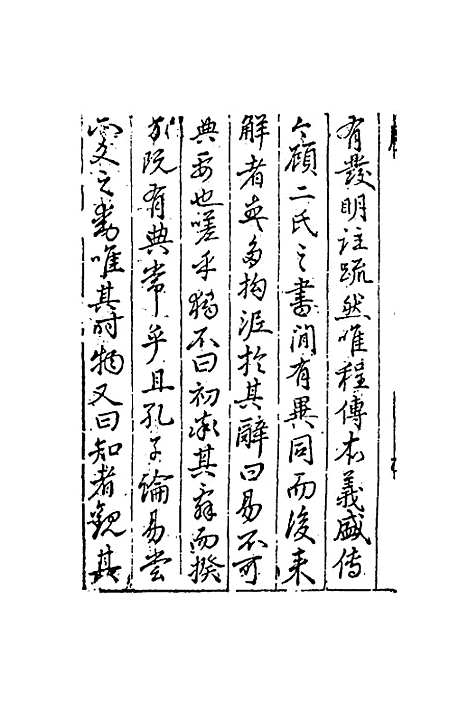 有發明註疏然唯程傳本義盛傳
今顧二氏之書間有異同而後来
解者無多拘泥於其辭曰易不可
典要也嗟乎獨不曰初率其辞而揆
方既有典常乎且孔子論易嘗
爻之唯其時物又曰知者觀其